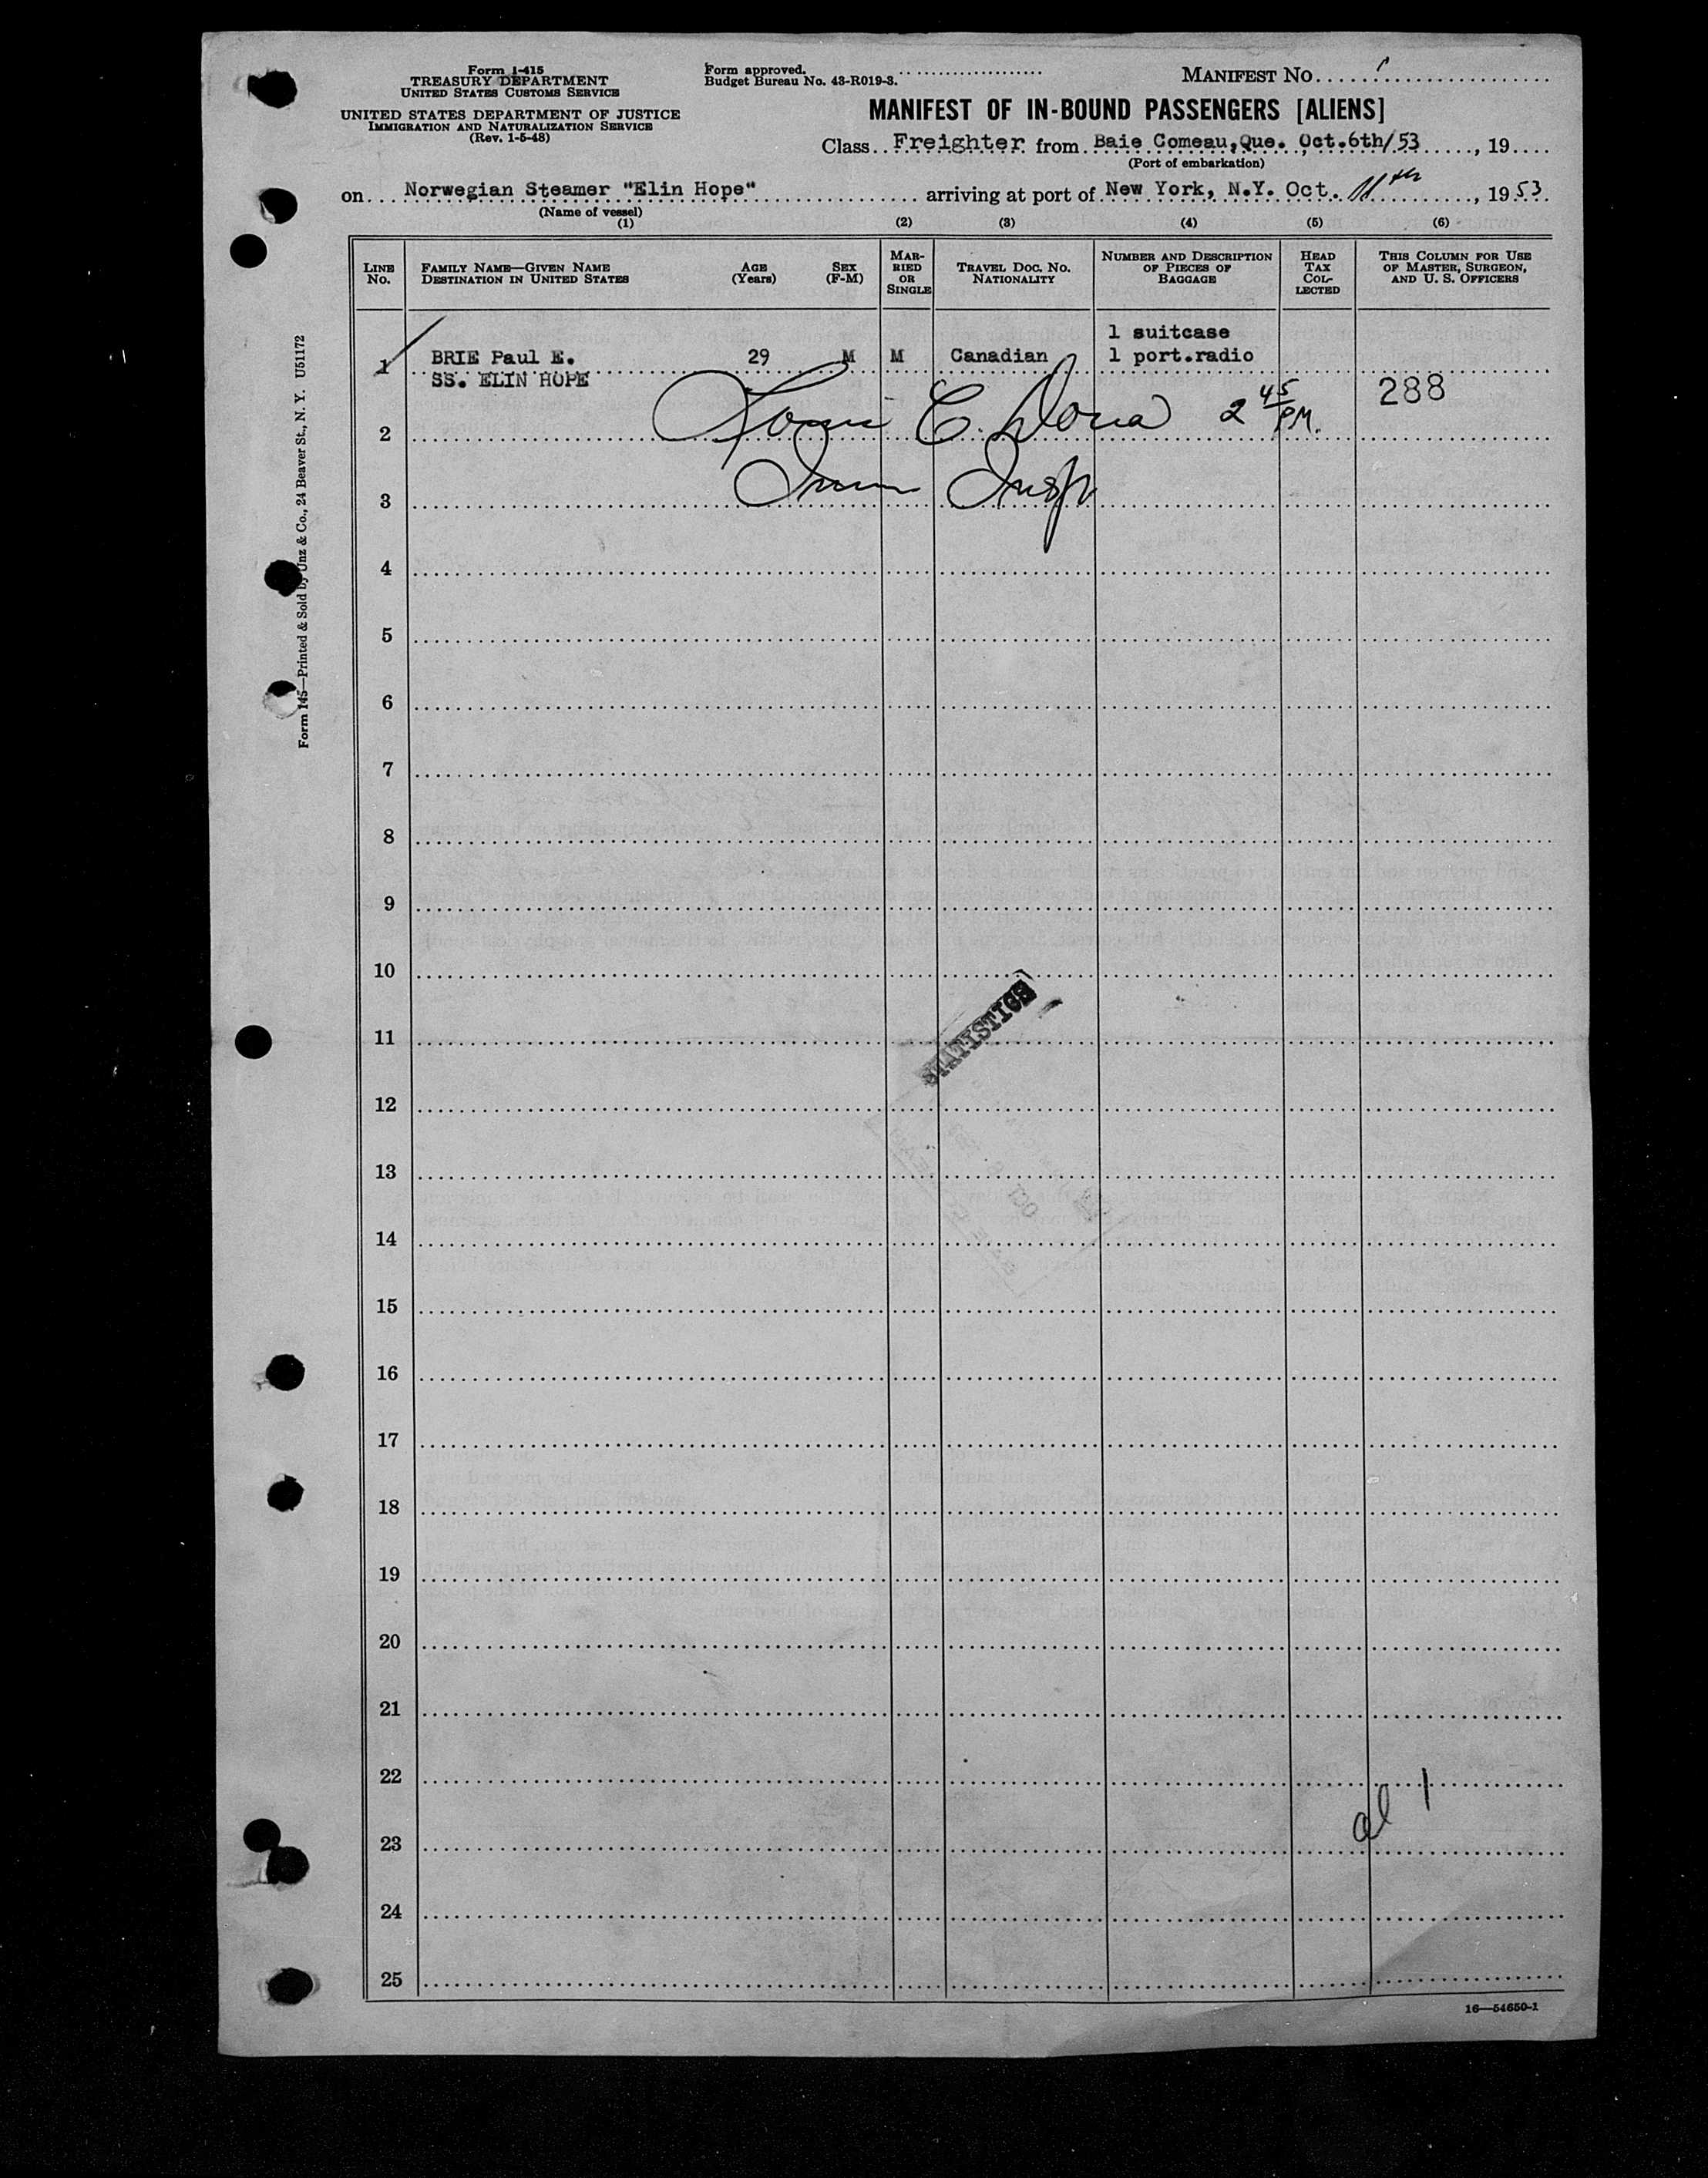 Form I-415
TREASURY DEPARTMENT
UNITED STATES CUSTOMS SERVICE
UNITED STATES DEPARTMENT OF JUSTICE
IMMIGRATION AND NATURALIZATION SERVICE
(Rev. 1-5-48)
Form approved.
Budget Bureau No. 43-R019-3.
MANIFEST NO. 1
MANIFEST OF IN-BOUND PASSENGERS [ALIENS]
Class Freighter from Baie Comeau, Que. Oct.6th/53, 19
(Port of embarkation)
on Norwegian Steamer "Elin Hope" arriving at port of New York, N.Y. Oct. 11th, 1953
(Name of vessel)
(1) (2) (3) (4) (5) (6)
LINE NO. FAMILY NAME—GIVEN NAME DESTINATION IN UNITED STATES AGE (Years) SEX (F-M) MAR-RIED OR SINGLE TRAVEL DOC. NO. NATIONALITY NUMBER AND DESCRIPTION OF PIECES OF BAGGAGE HEAD TAX COL-LECTED THIS COLUMN FOR USE OF MASTER, SURGEON, AND U. S. OFFICERS
1 suitcase
1 BRIE Paul E. 29 M M Canadian 1 port.radio
SS. ELIN HOPE
288
2 Louis C. Doria 2 45 PM.
3 Imm Insp
4
5
6
7
8
9
10
STATISTICS
11
12
13
OCT
14
15
16
17
18
19
20
21
22
al 1
23
24
25
16—54650-1
Form 145—Printed & Sold by Unz & Co., 24 Beaver St., N. Y. U51172